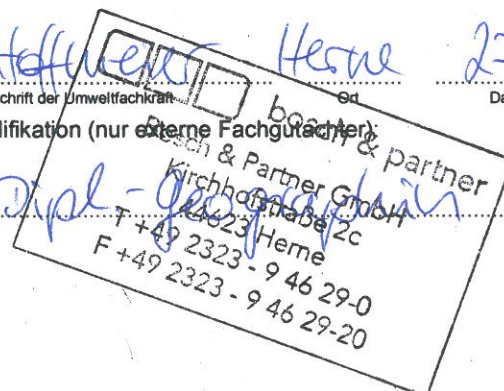 Herne 27
chrift der Umweltfachkraft Ort Da
lifikation (nur externe Fachgutachter):
Dipl-Geographin
bosch & partner
Bosch & Partner GmbH
Kirchhofstraße 2c
44623 Herne
T +49 2323 - 9 46 29-0
F +49 2323 - 9 46 29-20